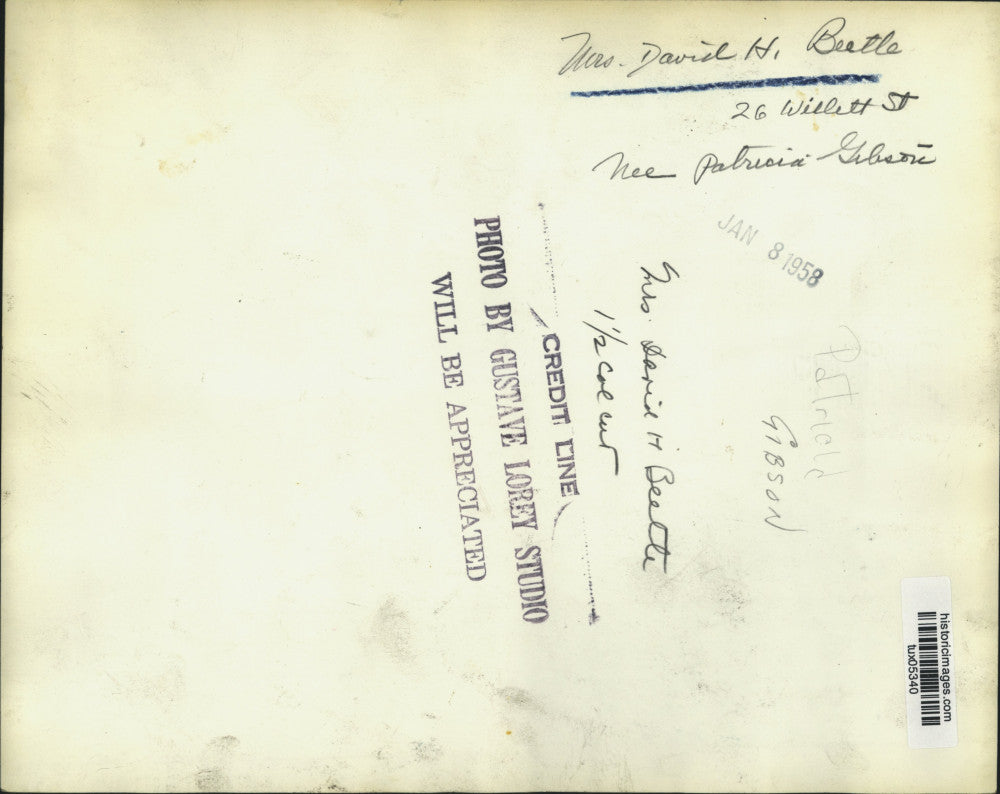 Mrs. David H. Beetle
26 Willett St
Nee Patricia Gibson
JAN 8 1958
Mrs. David H Beetle
1 1/2 col cut
CREDIT LINE
PHOTO BY GUSTAVE LOREY STUDIO
WILL BE APPRECIATED
Patricia
GIBSON
historicimages.com
tux05340